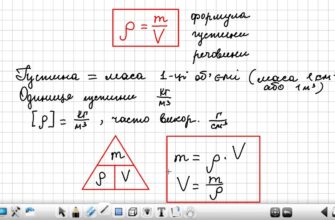 ρ = m/V формула
густини
речовини
Густина = маса 1-ці об'єму (маса 1 см³
або 1 м³)
Одиниця густини кг/м³
[ρ] = кг/м³, часто викор. г/см³
m
ρ V
m = ρ · V
V = m/ρ